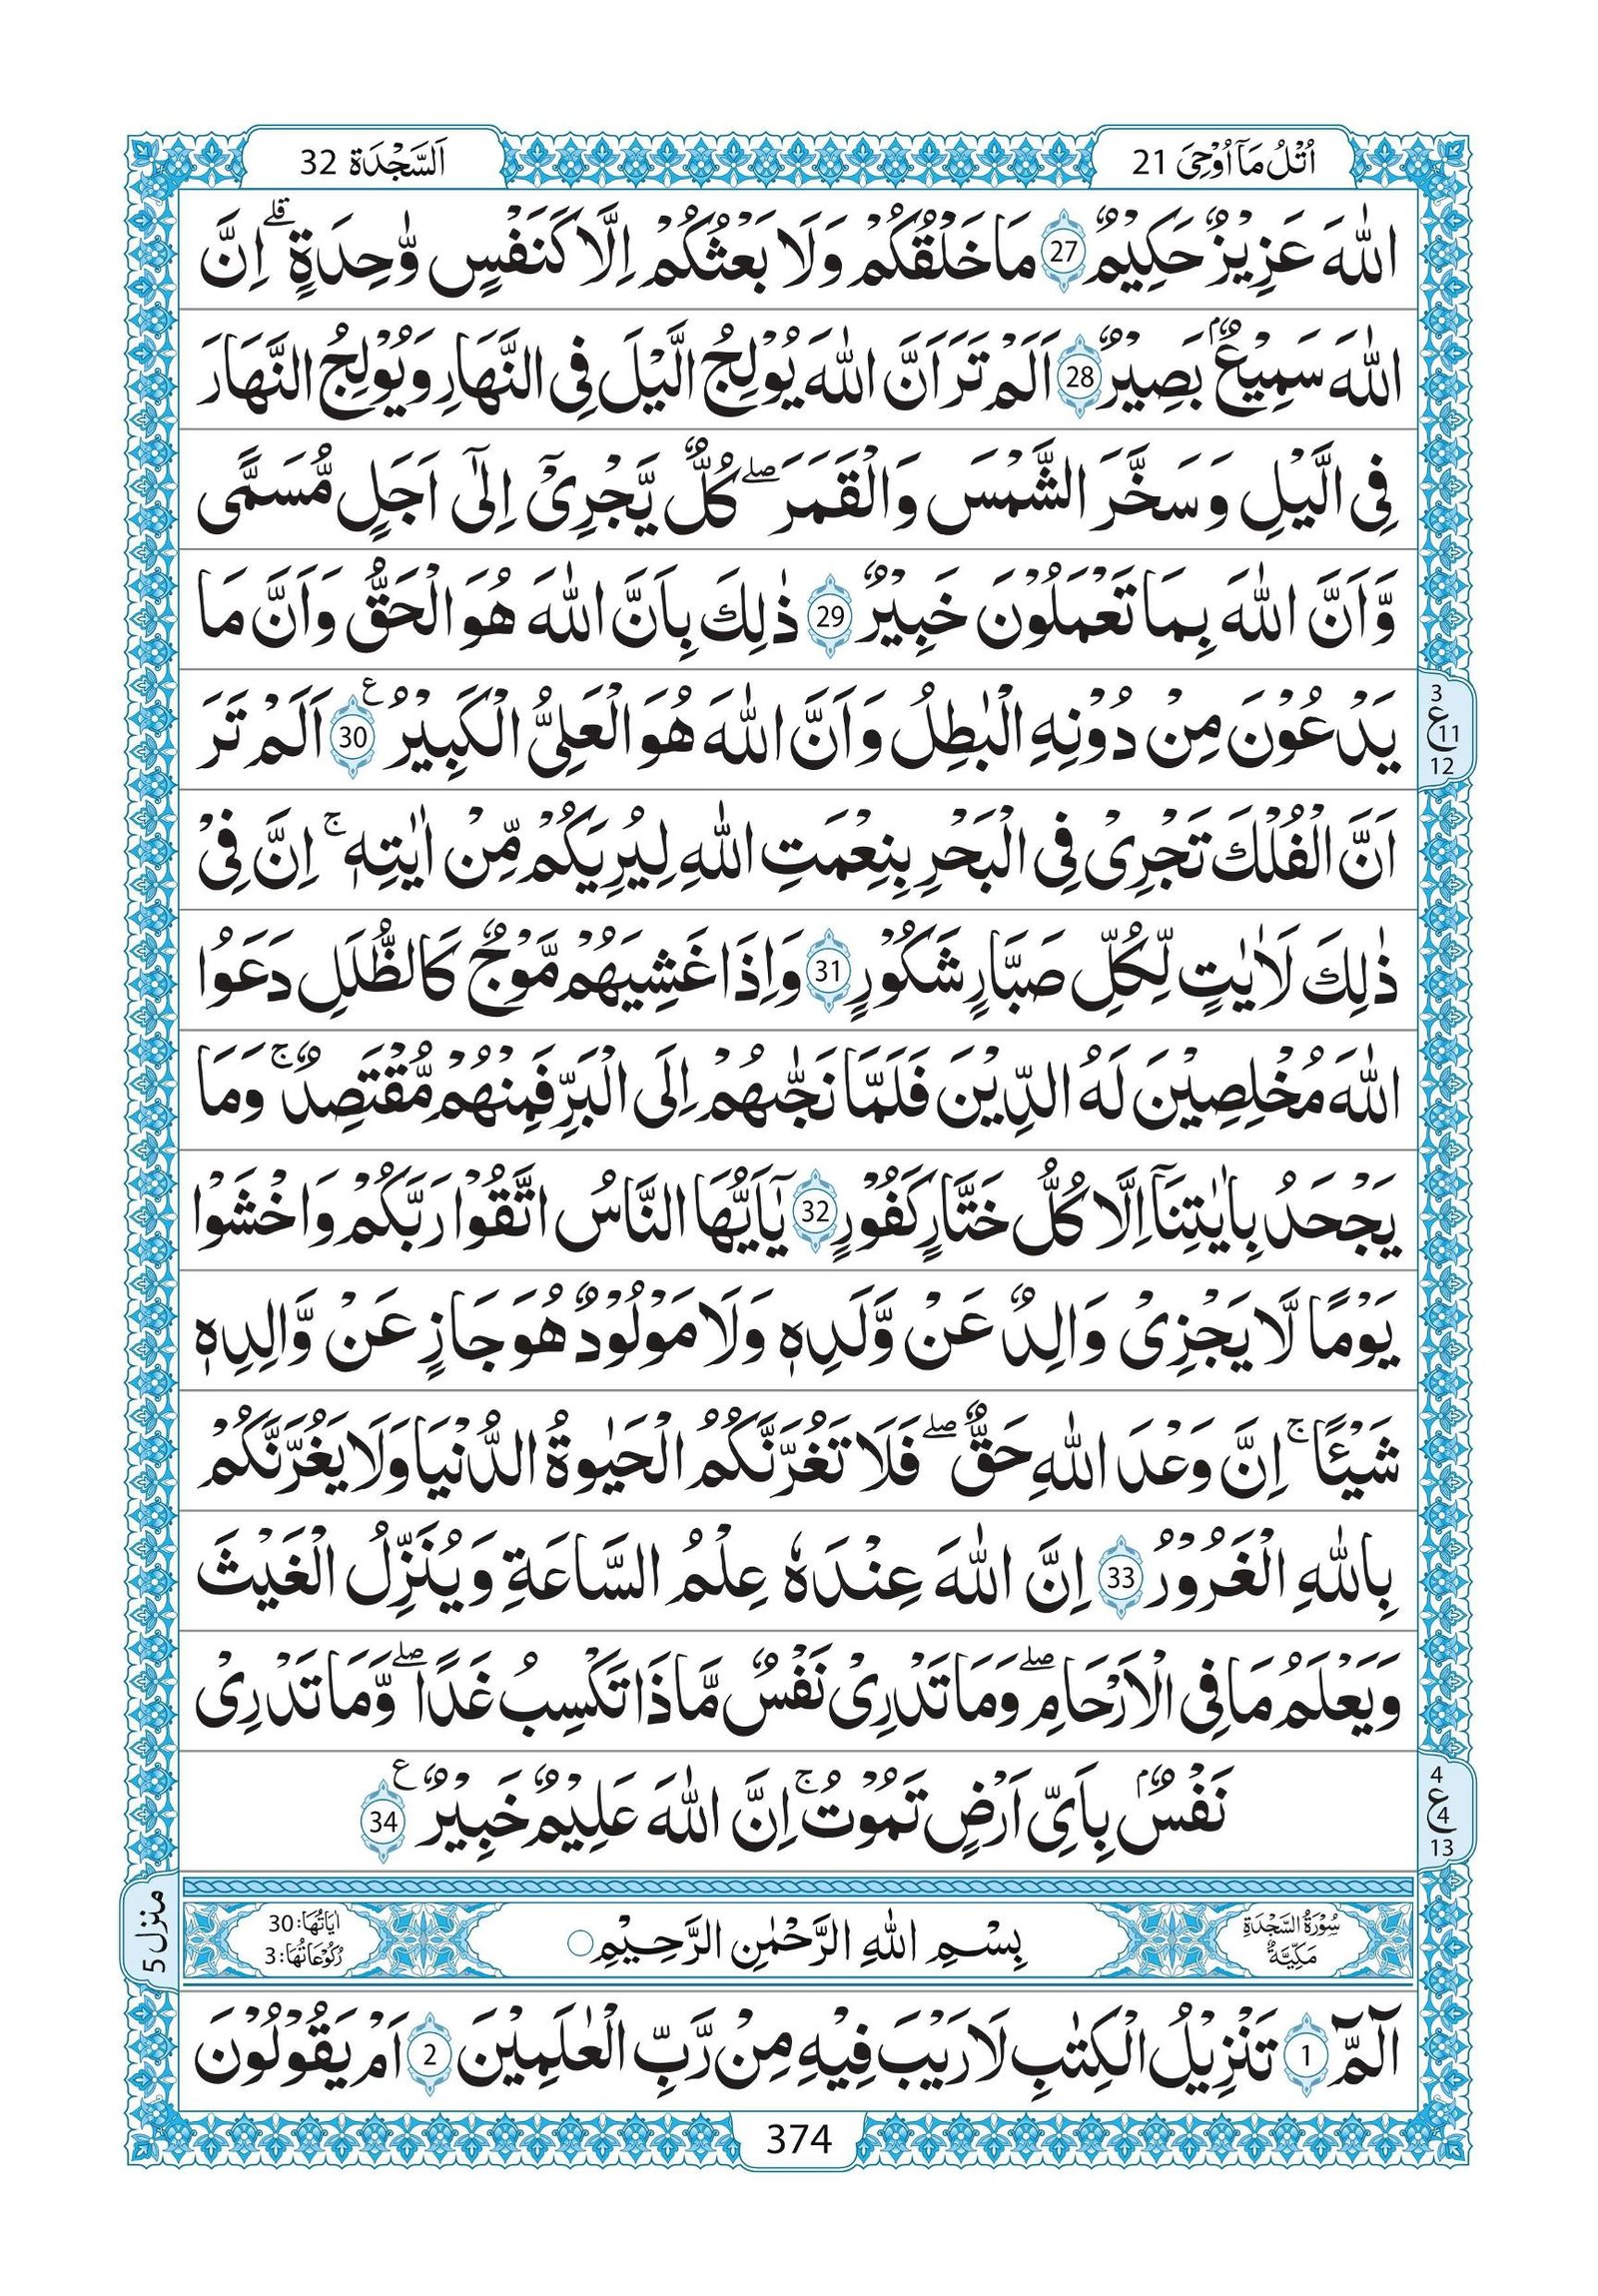 اُتْلُ مَاۤ اُوْحِیَ 21
اَلسَّجْدَة 32
اللّٰهَ عَزِیْزٌ حَكِیْمٌ 27 مَا خَلْقُكُمْ وَلَا بَعْثُكُمْ اِلَّا كَنَفْسٍ وَّاحِدَةٍ ؕ اِنَّ
اللّٰهَ سَمِیْعٌۢ بَصِیْرٌ 28 اَلَمْ تَرَ اَنَّ اللّٰهَ یُوْلِجُ الَّیْلَ فِی النَّهَارِ وَیُوْلِجُ النَّهَارَ
فِی الَّیْلِ وَسَخَّرَ الشَّمْسَ وَالْقَمَرَ ۖ كُلٌّ یَّجْرِیْۤ اِلٰۤی اَجَلٍ مُّسَمًّی
وَّاَنَّ اللّٰهَ بِمَا تَعْمَلُوْنَ خَبِیْرٌ 29 ذٰلِكَ بِاَنَّ اللّٰهَ هُوَ الْحَقُّ وَاَنَّ مَا
یَدْعُوْنَ مِنْ دُوْنِهِ الْبٰطِلُ وَاَنَّ اللّٰهَ هُوَ الْعَلِیُّ الْكَبِیْرُ ع 30 اَلَمْ تَرَ
3 ع 11 12
اَنَّ الْفُلْكَ تَجْرِیْ فِی الْبَحْرِ بِنِعْمَتِ اللّٰهِ لِیُرِیَكُمْ مِّنْ اٰیٰتِهٖ ۚ اِنَّ فِیْ
ذٰلِكَ لَاٰیٰتٍ لِّكُلِّ صَبَّارٍ شَكُوْرٍ 31 وَاِذَا غَشِیَهُمْ مَّوْجٌ كَالظُّلَلِ دَعَوُا
اللّٰهَ مُخْلِصِیْنَ لَهُ الدِّیْنَ فَلَمَّا نَجّٰىهُمْ اِلَی الْبَرِّ فَمِنْهُمْ مُّقْتَصِدٌ ۚ وَمَا
یَجْحَدُ بِاٰیٰتِنَاۤ اِلَّا كُلُّ خَتَّارٍ كَفُوْرٍ 32 یٰۤاَیُّهَا النَّاسُ اتَّقُوْا رَبَّكُمْ وَاخْشَوْا
یَوْمًا لَّا یَجْزِیْ وَالِدٌ عَنْ وَّلَدِهٖ وَلَا مَوْلُوْدٌ هُوَ جَازٍ عَنْ وَّالِدِهٖ
شَیْـًٔا ۚ اِنَّ وَعْدَ اللّٰهِ حَقٌّ ۖ فَلَا تَغُرَّنَّكُمُ الْحَیٰوةُ الدُّنْیَا وَلَا یَغُرَّنَّكُمْ
بِاللّٰهِ الْغَرُوْرُ 33 اِنَّ اللّٰهَ عِنْدَهٗ عِلْمُ السَّاعَةِ وَیُنَزِّلُ الْغَیْثَ
وَیَعْلَمُ مَا فِی الْاَرْحَامِ ۖ وَمَا تَدْرِیْ نَفْسٌ مَّاذَا تَكْسِبُ غَدًا ۖ وَّمَا تَدْرِیْ
نَفْسٌۢ بِاَیِّ اَرْضٍ تَمُوْتُ ۚ اِنَّ اللّٰهَ عَلِیْمٌ خَبِیْرٌ ع 34
4 ع 4 13
منزل 5
سُوْرَةُ السَّجْدَةِ
مَكِّیَّةٌ
بِسْمِ اللّٰهِ الرَّحْمٰنِ الرَّحِیْمِ
اٰیَاتُهَا: 30
رُكُوْعَاتُهَا: 3
الٓمّٓ 1 تَنْزِیْلُ الْكِتٰبِ لَا رَیْبَ فِیْهِ مِنْ رَّبِّ الْعٰلَمِیْنَ 2 اَمْ یَقُوْلُوْنَ
374